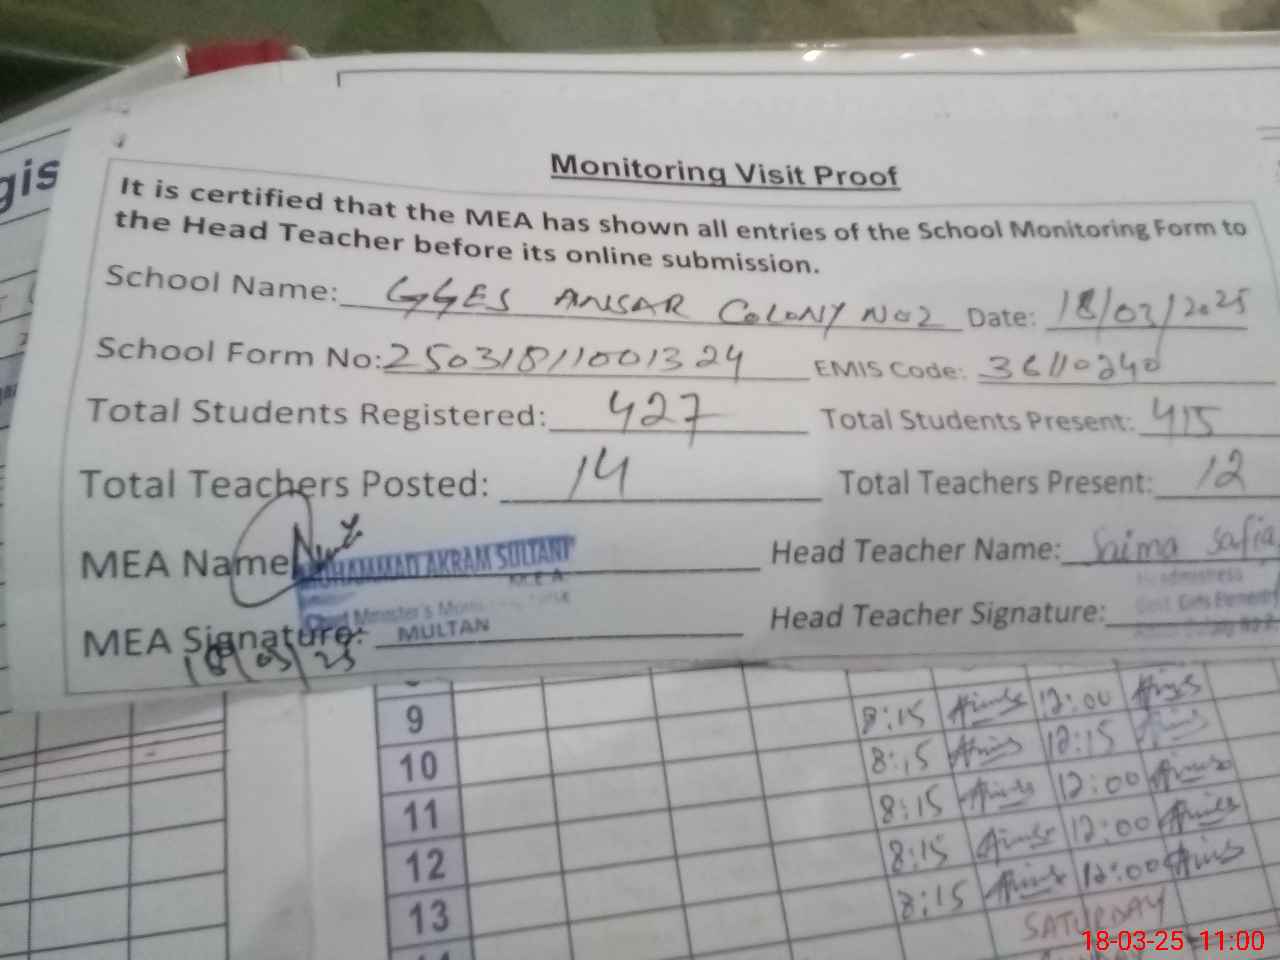 gis
Monitoring Visit Proof
It is certified that the MEA has shown all entries of the School Monitoring Form to
the Head Teacher before its online submission.
School Name: GGES ANSAR COLONY No 2 Date: 18/03/2025
School Form No: 25031811001324 EMIS Code: 36110240
Total Students Registered: 427 Total Students Present: 415
Total Teachers Posted: 14 Total Teachers Present: 12
MEA Name MUHAMMAD AKRAM SULTANI Head Teacher Name: Saima Safia
M.E.A
Chief Minister's
MEA Signature: MULTAN Head Teacher Signature:
18/03/25
9 8:15 12:00
10 8:15 12:15
11 8:15 12:00
12 8:15 12:00
13 8:15 12:00
SATURDAY
18-03-25 11:00